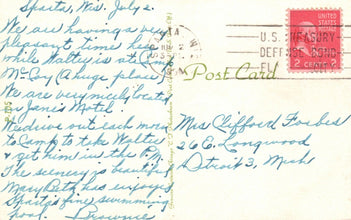 Sparta, Wis. July 2.
We are having a very
pleasant time here
while Walter is at Camp
McCoy a huge place
We are very nicely located
at Jane's Motel.
We drive out each morn
to Camp to take Walter
& get him in the P.M.
The scenery is beautiful
Mary Beth has enjoyed
Sparta's fine swimming
pool. Brownie
U.S. TREASURY
DEFENSE BOND
UNITED STATES
POSTAGE
2 CENTS 2
Post Card
Mrs Clifford Forbes
266 E. Longwood
Detroit 3, Mich